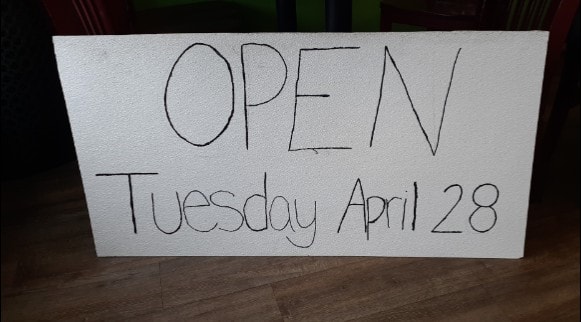 OPEN
Tuesday April 28